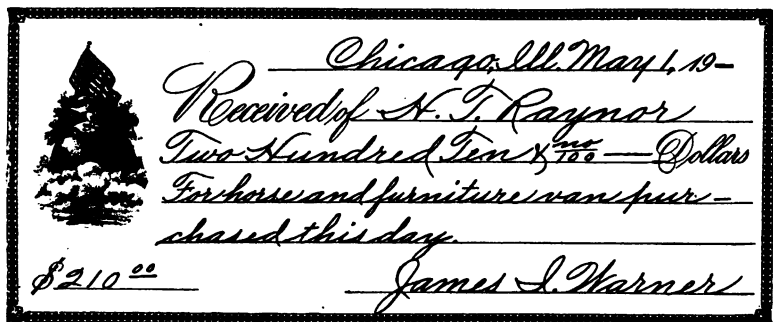 Chicago, Ill. May 1, 19–
Received of H. T. Raynor
Two Hundred Ten & no/100 — Dollars
For horse and furniture van pur–
chased this day.
$210 00 James I. Warner